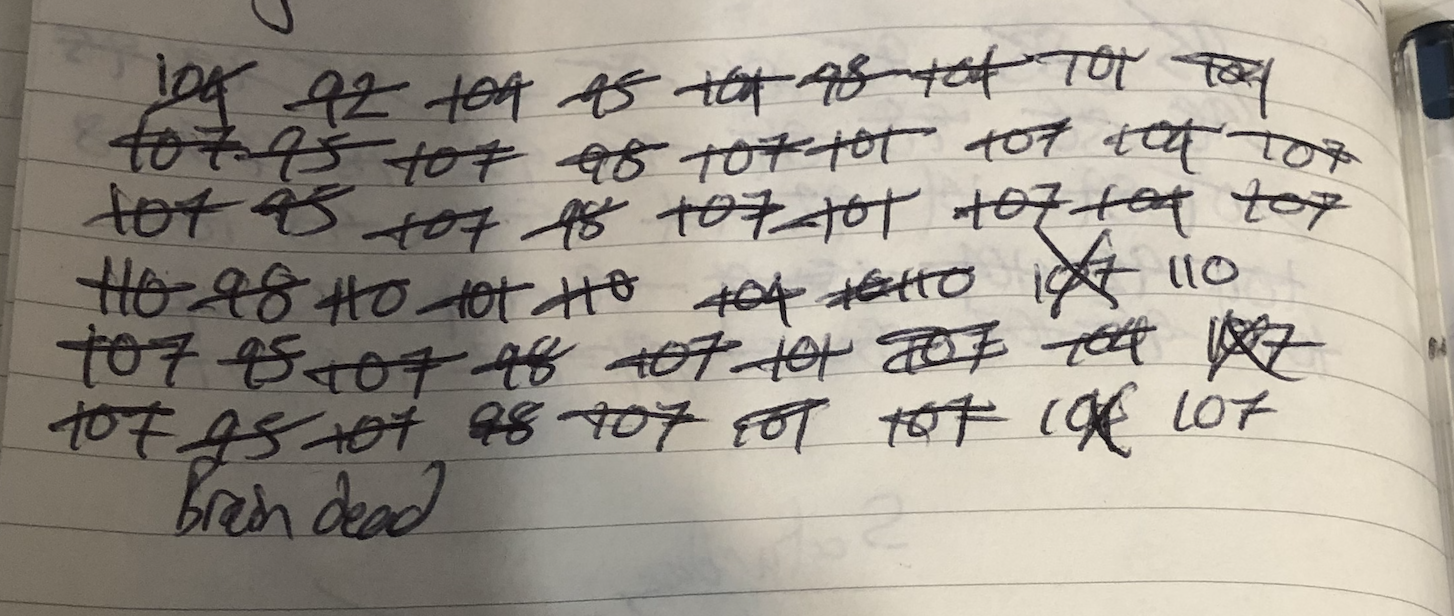 104 92 104 95 101 98 104 101 104
107 95 107 98 107 101 107 104 107
107 95 107 98 107 101 107 104 107
110 98 110 101 110 104 110 107 110
107 95 107 98 107 101 107 104 107
107 95 107 98 107 101 107 104 107
Brain dead